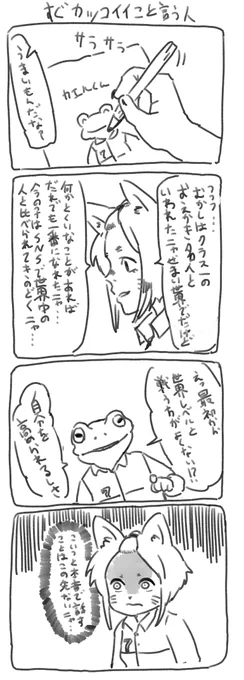 すぐカッコイイこと言う人
サラサラ
カエルくん
うまいもんだな？
フフフ…
むかしはクラス一の
おえかき名人と
いわれたニャせまい世界だけど
何かとくいなことがあれば
だれでも一番になれたニャ…
今の子はSNSで世界中の
人と比べられてきのどくニャ…
え?最初から
世界レベルと
戦う方がよくない!?
自分を
高められるしさ
こいつと本音で話す
ことはこの先ないニャ…